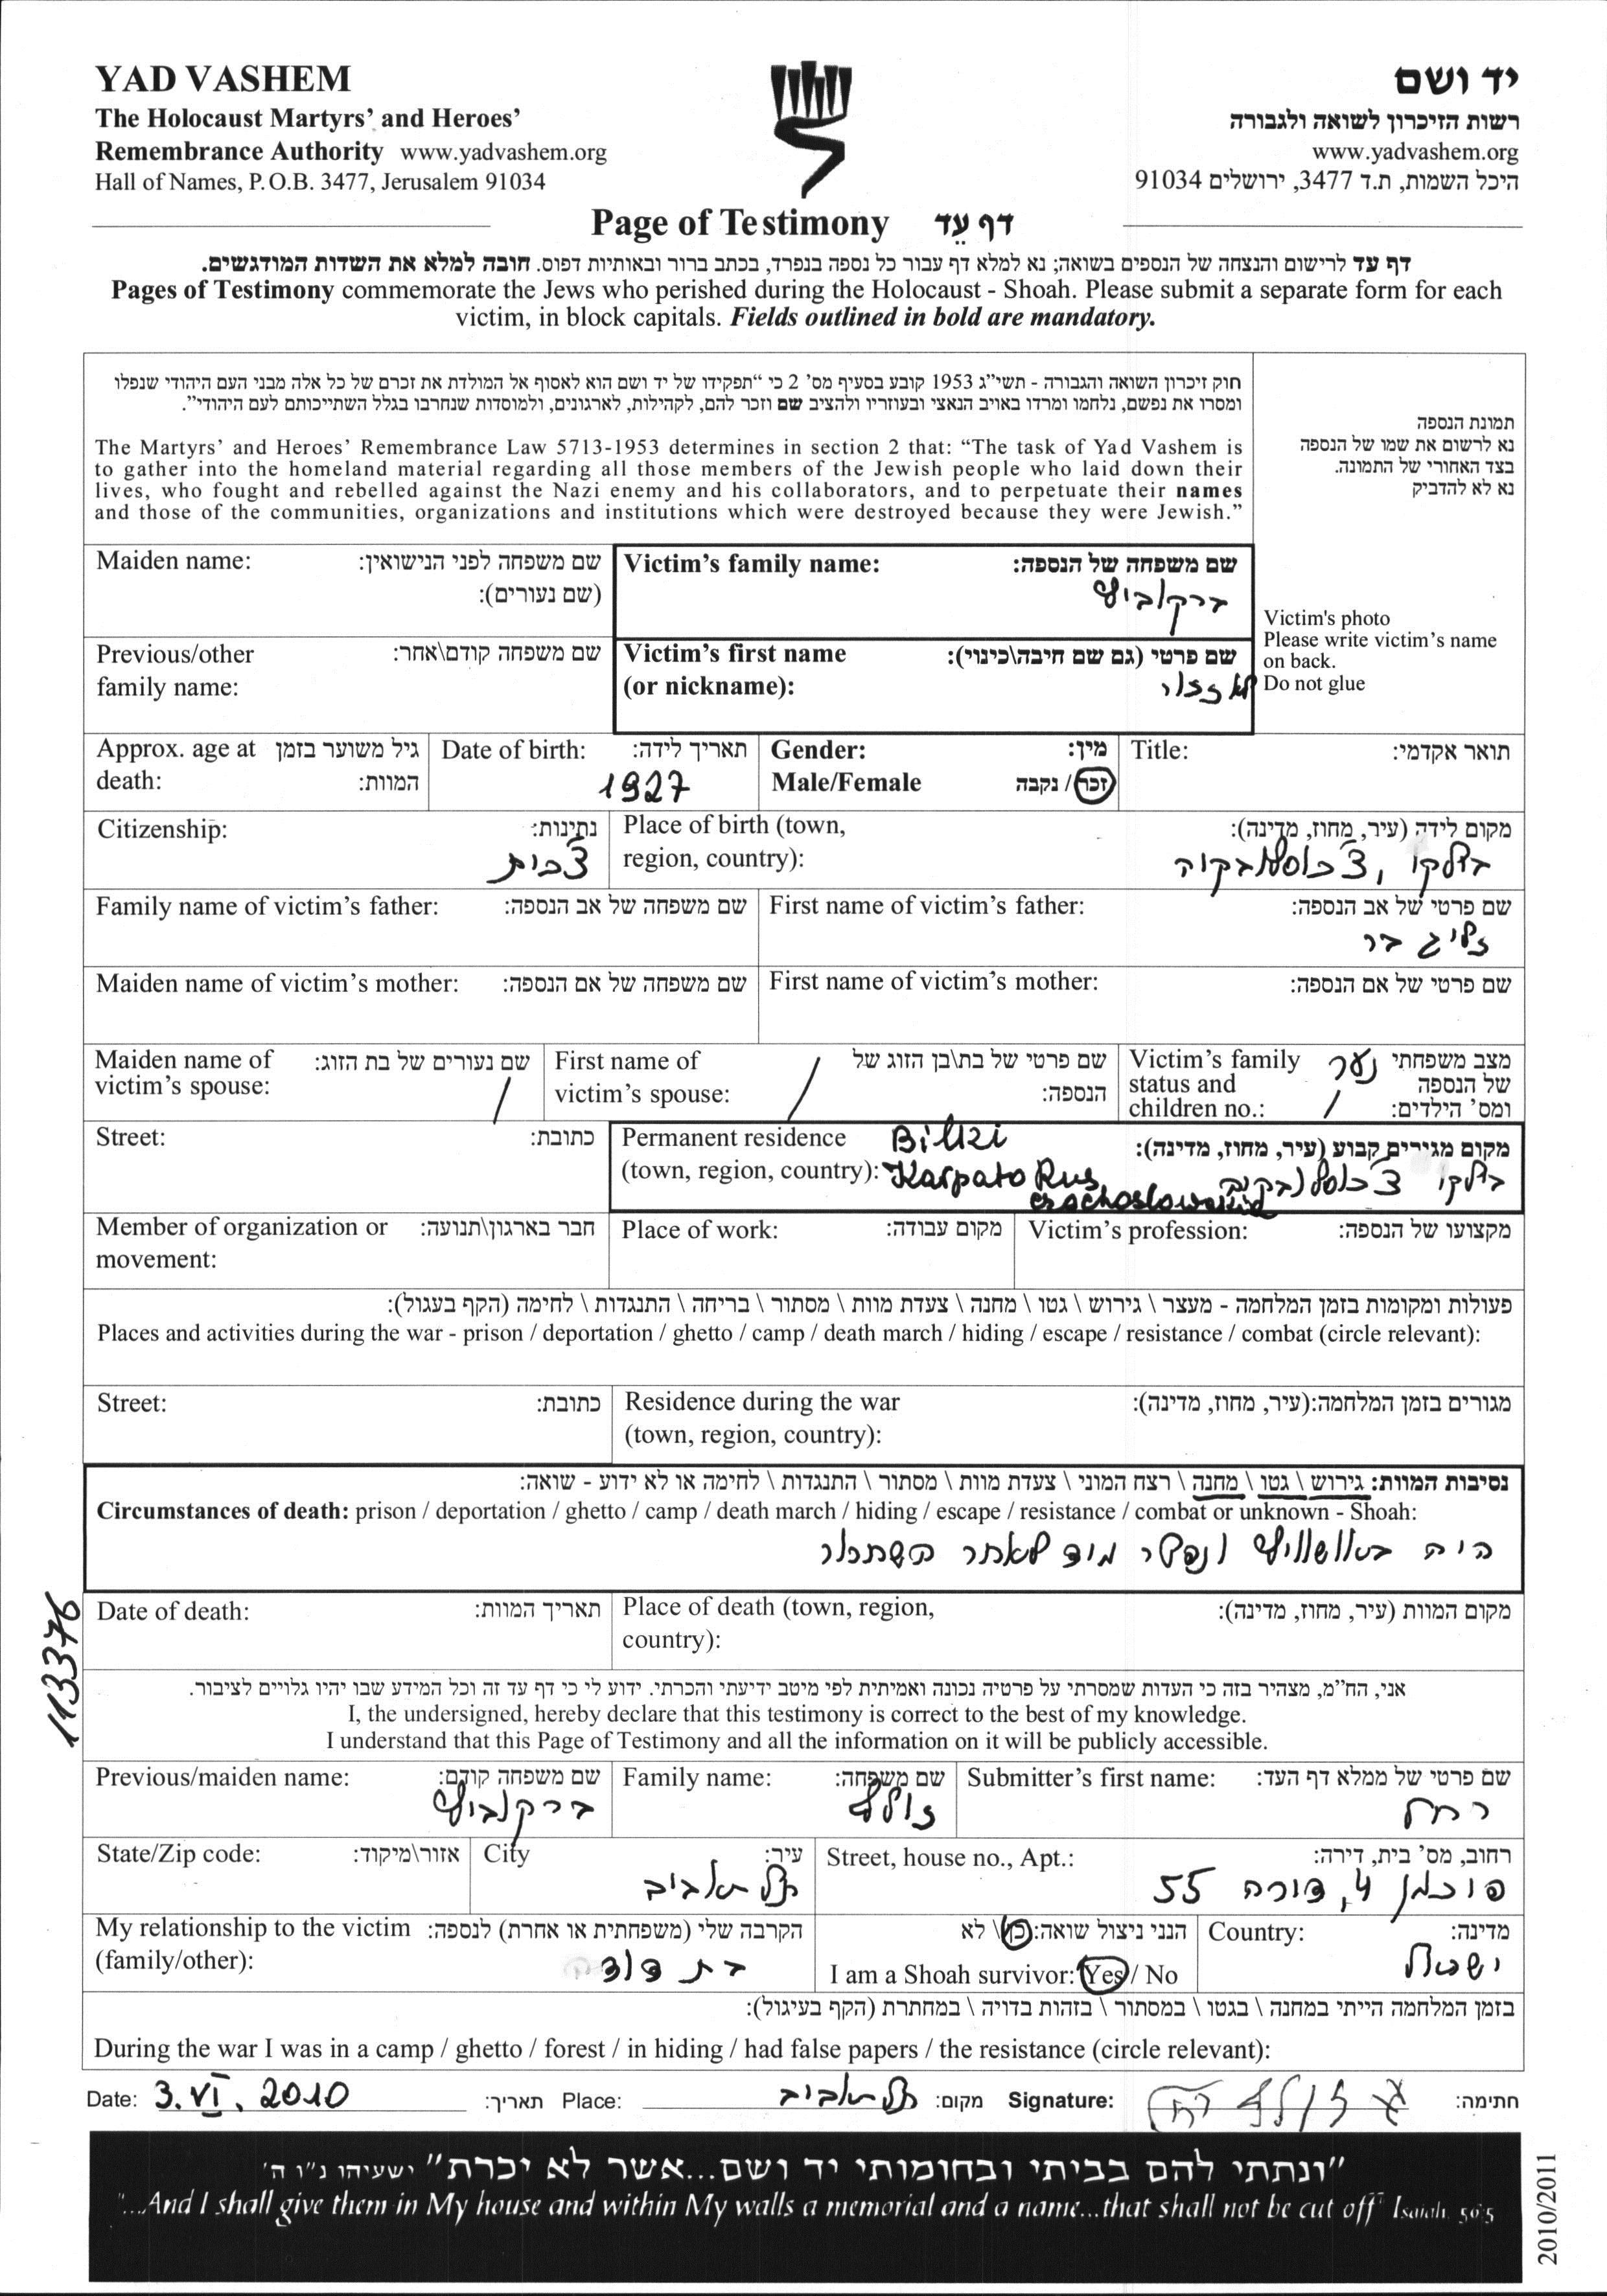 YAD VASHEM
The Holocaust Martyrs' and Heroes'
Remembrance Authority www.yadvashem.org
Hall of Names, P.O.B. 3477, Jerusalem 91034
יד ושם
רשות הזיכרון לשואה ולגבורה
www.yadvashem.org
היכל השמות, ת.ד 3477, ירושלים 91034
Page of Testimony דף עֵד
דף עד לרישום והנצחה של הנספים בשואה; נא למלא דף עבור כל נספה בנפרד, בכתב ברור ובאותיות דפוס. חובה למלא את השדות המודגשים.
Pages of Testimony commemorate the Jews who perished during the Holocaust - Shoah. Please submit a separate form for each
victim, in block capitals. Fields outlined in bold are mandatory.
חוק זיכרון השואה והגבורה - תשי"ג 1953 קובע בסעיף מס' 2 כי "תפקידו של יד ושם הוא לאסוף אל המולדת את זכרם של כל אלה מבני העם היהודי שנפלו
ומסרו את נפשם, נלחמו ומרדו באויב הנאצי ובעוזריו ולהציב שם וזכר להם, לקהילות, לארגונים, ולמוסדות שנחרבו בגלל השתייכותם לעם היהודי".
The Martyrs' and Heroes' Remembrance Law 5713-1953 determines in section 2 that: "The task of Yad Vashem is
to gather into the homeland material regarding all those members of the Jewish people who laid down their
lives, who fought and rebelled against the Nazi enemy and his collaborators, and to perpetuate their names
and those of the communities, organizations and institutions which were destroyed because they were Jewish."
תמונת הנספה
נא לרשום את שמו של הנספה
בצד האחורי של התמונה.
נא לא להדביק
Victim's photo
Please write victim's name
on back.
Do not glue
Maiden name: שם משפחה לפני הנישואין:
(שם נעורים):
Victim's family name: שם משפחה של הנספה:
ברקוביץ
Previous/other שם משפחה קודם\אחר:
family name:
Victim's first name שם פרטי (גם שם חיבה\כינוי):
(or nickname):
Approx. age at גיל משוער בזמן
death: המוות:
Date of birth: תאריך לידה:
1927
Gender: מין:
Male/Female זכר / נקבה
Title: תואר אקדמי:
Citizenship: נתינות:
צ'כית
Place of birth (town, מקום לידה (עיר, מחוז, מדינה):
region, country):
בילקי, צ'כוסלובקיה
Family name of victim's father: שם משפחה של אב הנספה:
First name of victim's father: שם פרטי של אב הנספה:
זליג בר
Maiden name of victim's mother: שם משפחה של אם הנספה:
First name of victim's mother: שם פרטי של אם הנספה:
Maiden name of שם נעורים של בת הזוג:
victim's spouse: /
First name of שם פרטי של בת\בן הזוג של
victim's spouse: / הנספה:
Victim's family מצב משפחתי נער
status and של הנספה
children no.: / ומס' הילדים:
Street: כתובת:
Permanent residence Bilki מקום מגורים קבוע (עיר, מחוז, מדינה):
(town, region, country): Karpato Rus בילקי צ'כוסלובקיה
Member of organization or חבר בארגון\תנועה:
movement:
Place of work: מקום עבודה:
Victim's profession: מקצועו של הנספה:
פעולות ומקומות בזמן המלחמה - מעצר \ גירוש \ גטו \ מחנה \ צעדת מוות \ מסתור \ בריחה \ התנגדות \ לחימה (הקף בעגול):
Places and activities during the war - prison / deportation / ghetto / camp / death march / hiding / escape / resistance / combat (circle relevant):
Street: כתובת:
Residence during the war מגורים בזמן המלחמה:(עיר, מחוז, מדינה):
(town, region, country):
נסיבות המוות: גירוש \ גטו \ מחנה \ רצח המוני \ צעדת מוות \ מסתור \ התנגדות \ לחימה או לא ידוע - שואה:
Circumstances of death: prison / deportation / ghetto / camp / death march / hiding / escape / resistance / combat or unknown - Shoah:
היה באושוויץ ונפטר מיד לאחר השחרור
Date of death: תאריך המוות:
Place of death (town, region, מקום המוות (עיר, מחוז, מדינה):
country):
113376
אני, הח"מ, מצהיר בזה כי העדות שמסרתי על פרטיה נכונה ואמיתית לפי מיטב ידיעתי והכרתי. ידוע לי כי דף עד זה וכל המידע שבו יהיו גלויים לציבור.
I, the undersigned, hereby declare that this testimony is correct to the best of my knowledge.
I understand that this Page of Testimony and all the information on it will be publicly accessible.
Previous/maiden name: שם משפחה קודם:
ברקוביץ
Family name: שם משפחה:
זולף
Submitter's first name: שם פרטי של ממלא דף העד:
רחל
State/Zip code: אזור\מיקוד:
City עיר:
תל אביב
Street, house no., Apt.: רחוב, מס' בית, דירה:
4, דירה 55
My relationship to the victim הקרבה שלי (משפחתית או אחרת) לנספה:
(family/other): בת דודה
הנני ניצול שואה: כן \ לא
I am a Shoah survivor: Yes / No
Country: מדינה:
ישראל
בזמן המלחמה הייתי במחנה \ בגטו \ במסתור \ בזהות בדויה \ במחתרת (הקף בעיגול):
During the war I was in a camp / ghetto / forest / in hiding / had false papers / the resistance (circle relevant):
Date: 3.VI.2010 תאריך: Place: תל אביב מקום: Signature: חתימה:
"ונתתי להם בביתי ובחומותי יד ושם...אשר לא יכרת" ישעיהו נ"ו ה'
"...And I shall give them in My house and within My walls a memorial and a name...that shall not be cut off" Isaiah, 56:5
2010/2011